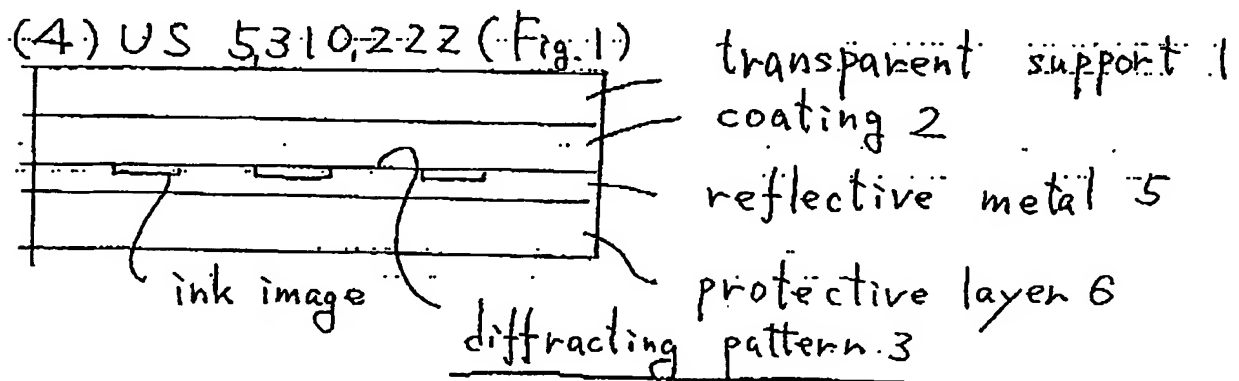 (4) US 5,310,222 (Fig. 1)
transparent support 1
coating 2
reflective metal 5
protective layer 6
ink image
diffracting pattern 3